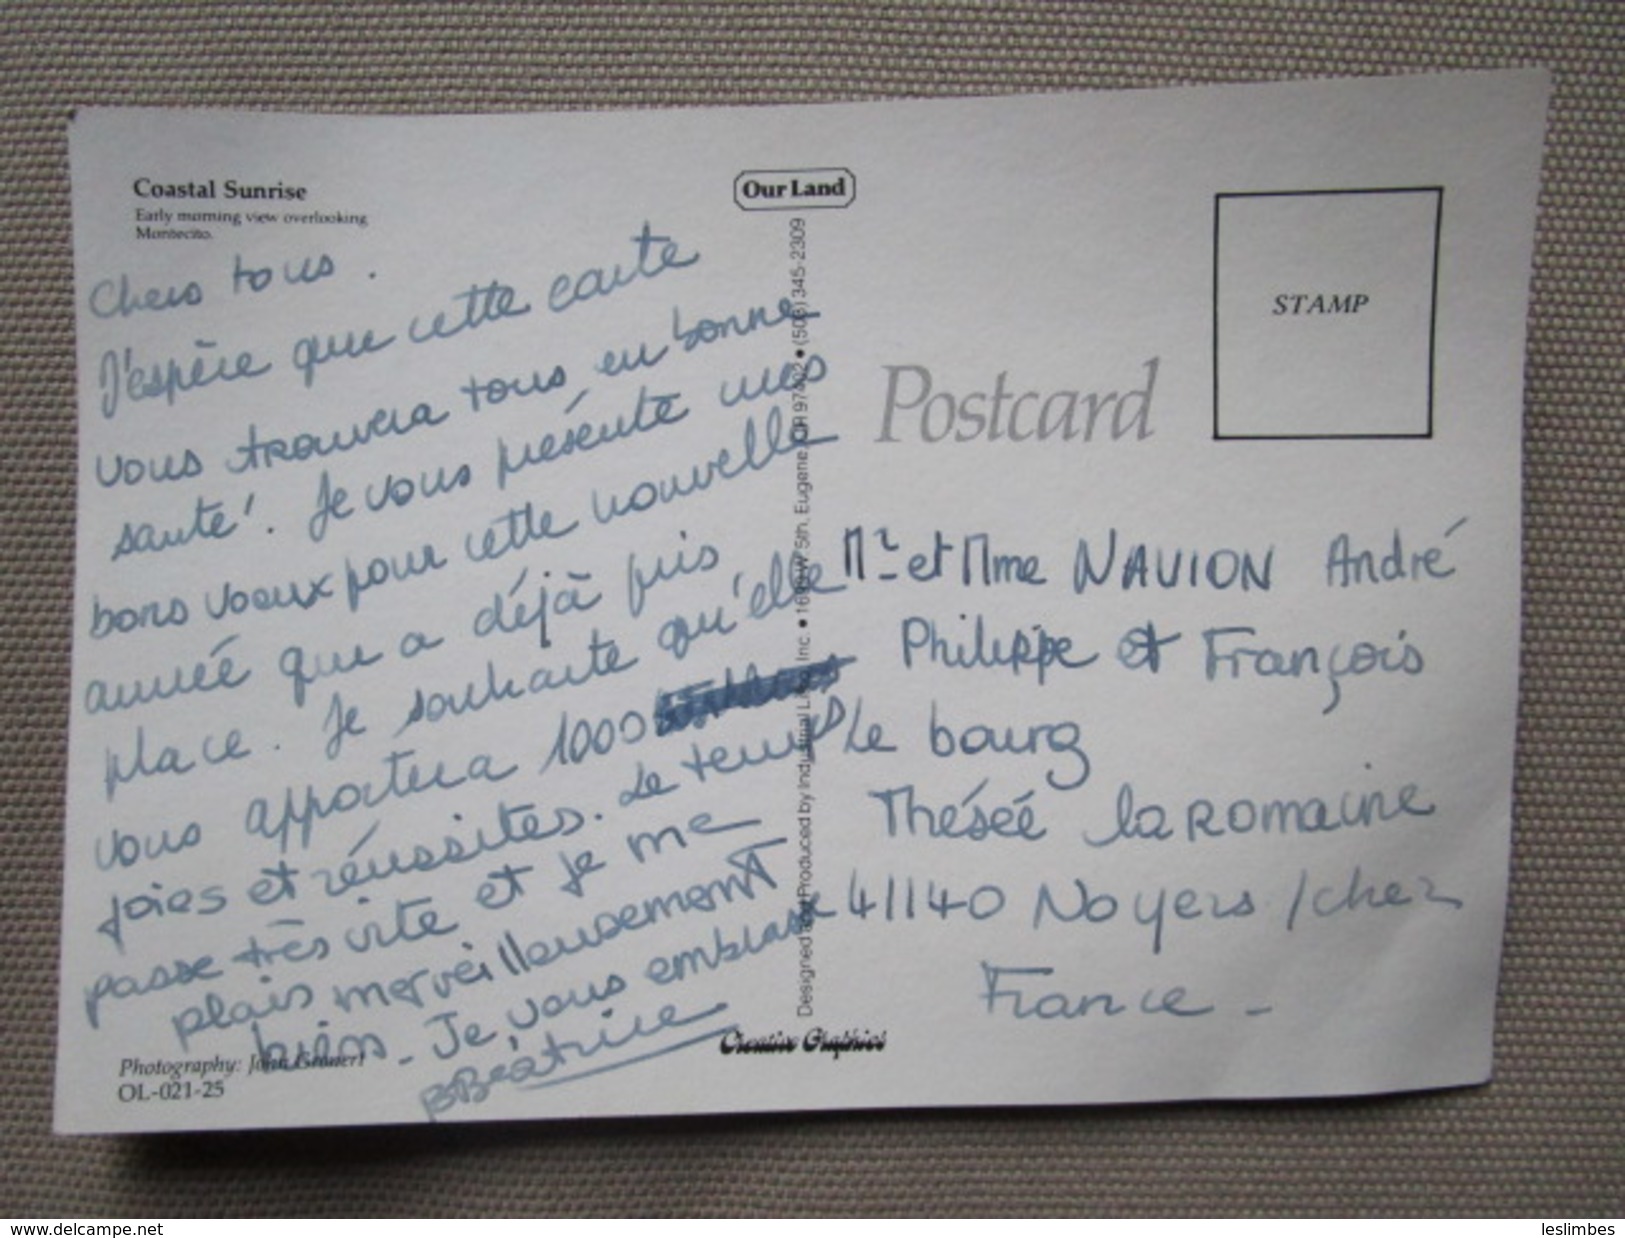 Coastal Sunrise
Early morning view overlooking
Montecito.
Chers tous.
J'espère que cette carte
vous trouvera tous, en bonne
santé. Je vous présente mes
bons voeux pour cette nouvelle
année qui a déjà pris
place. Je souhaite qu'elle
vous apportera 1000
joies et réussites. Le temps
passe très vite et je me
plais merveilleusement
bien - Je vous embrasse
Béatrice
Photography: John
OL-021-25
Our Land
Designed and Produced by Industrial Inc. • W 5th, Eugene, OR 97402 • (503) 345-2309
Creative Graphics
STAMP
Postcard
Mr et Mme NAVION André
Philippe et François
le bourg
Thésée la ROMAINE
41140 Noyers / cher
France -
www.delcampe.net
leslimbes